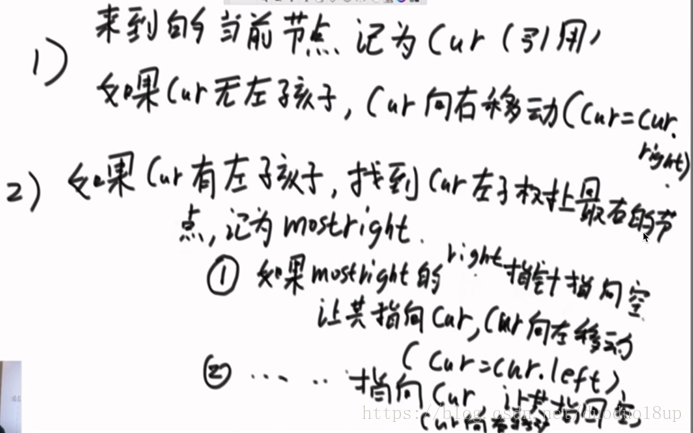 来到的当前节点,记为Cur(引用)
1)
如果Cur无左孩子,Cur向右移动(Cur=Cur.
right)
2) 如果Cur有左孩子,找到Cur左子树上最右的节
点,记为mostright.
① 如果mostright的right指针指向空
让其指向Cur,Cur向左移动
(Cur=Cur.left)
② ... .. 指向Cur,让其指向空,
Cur向右移动
https://blog.csdn.net/